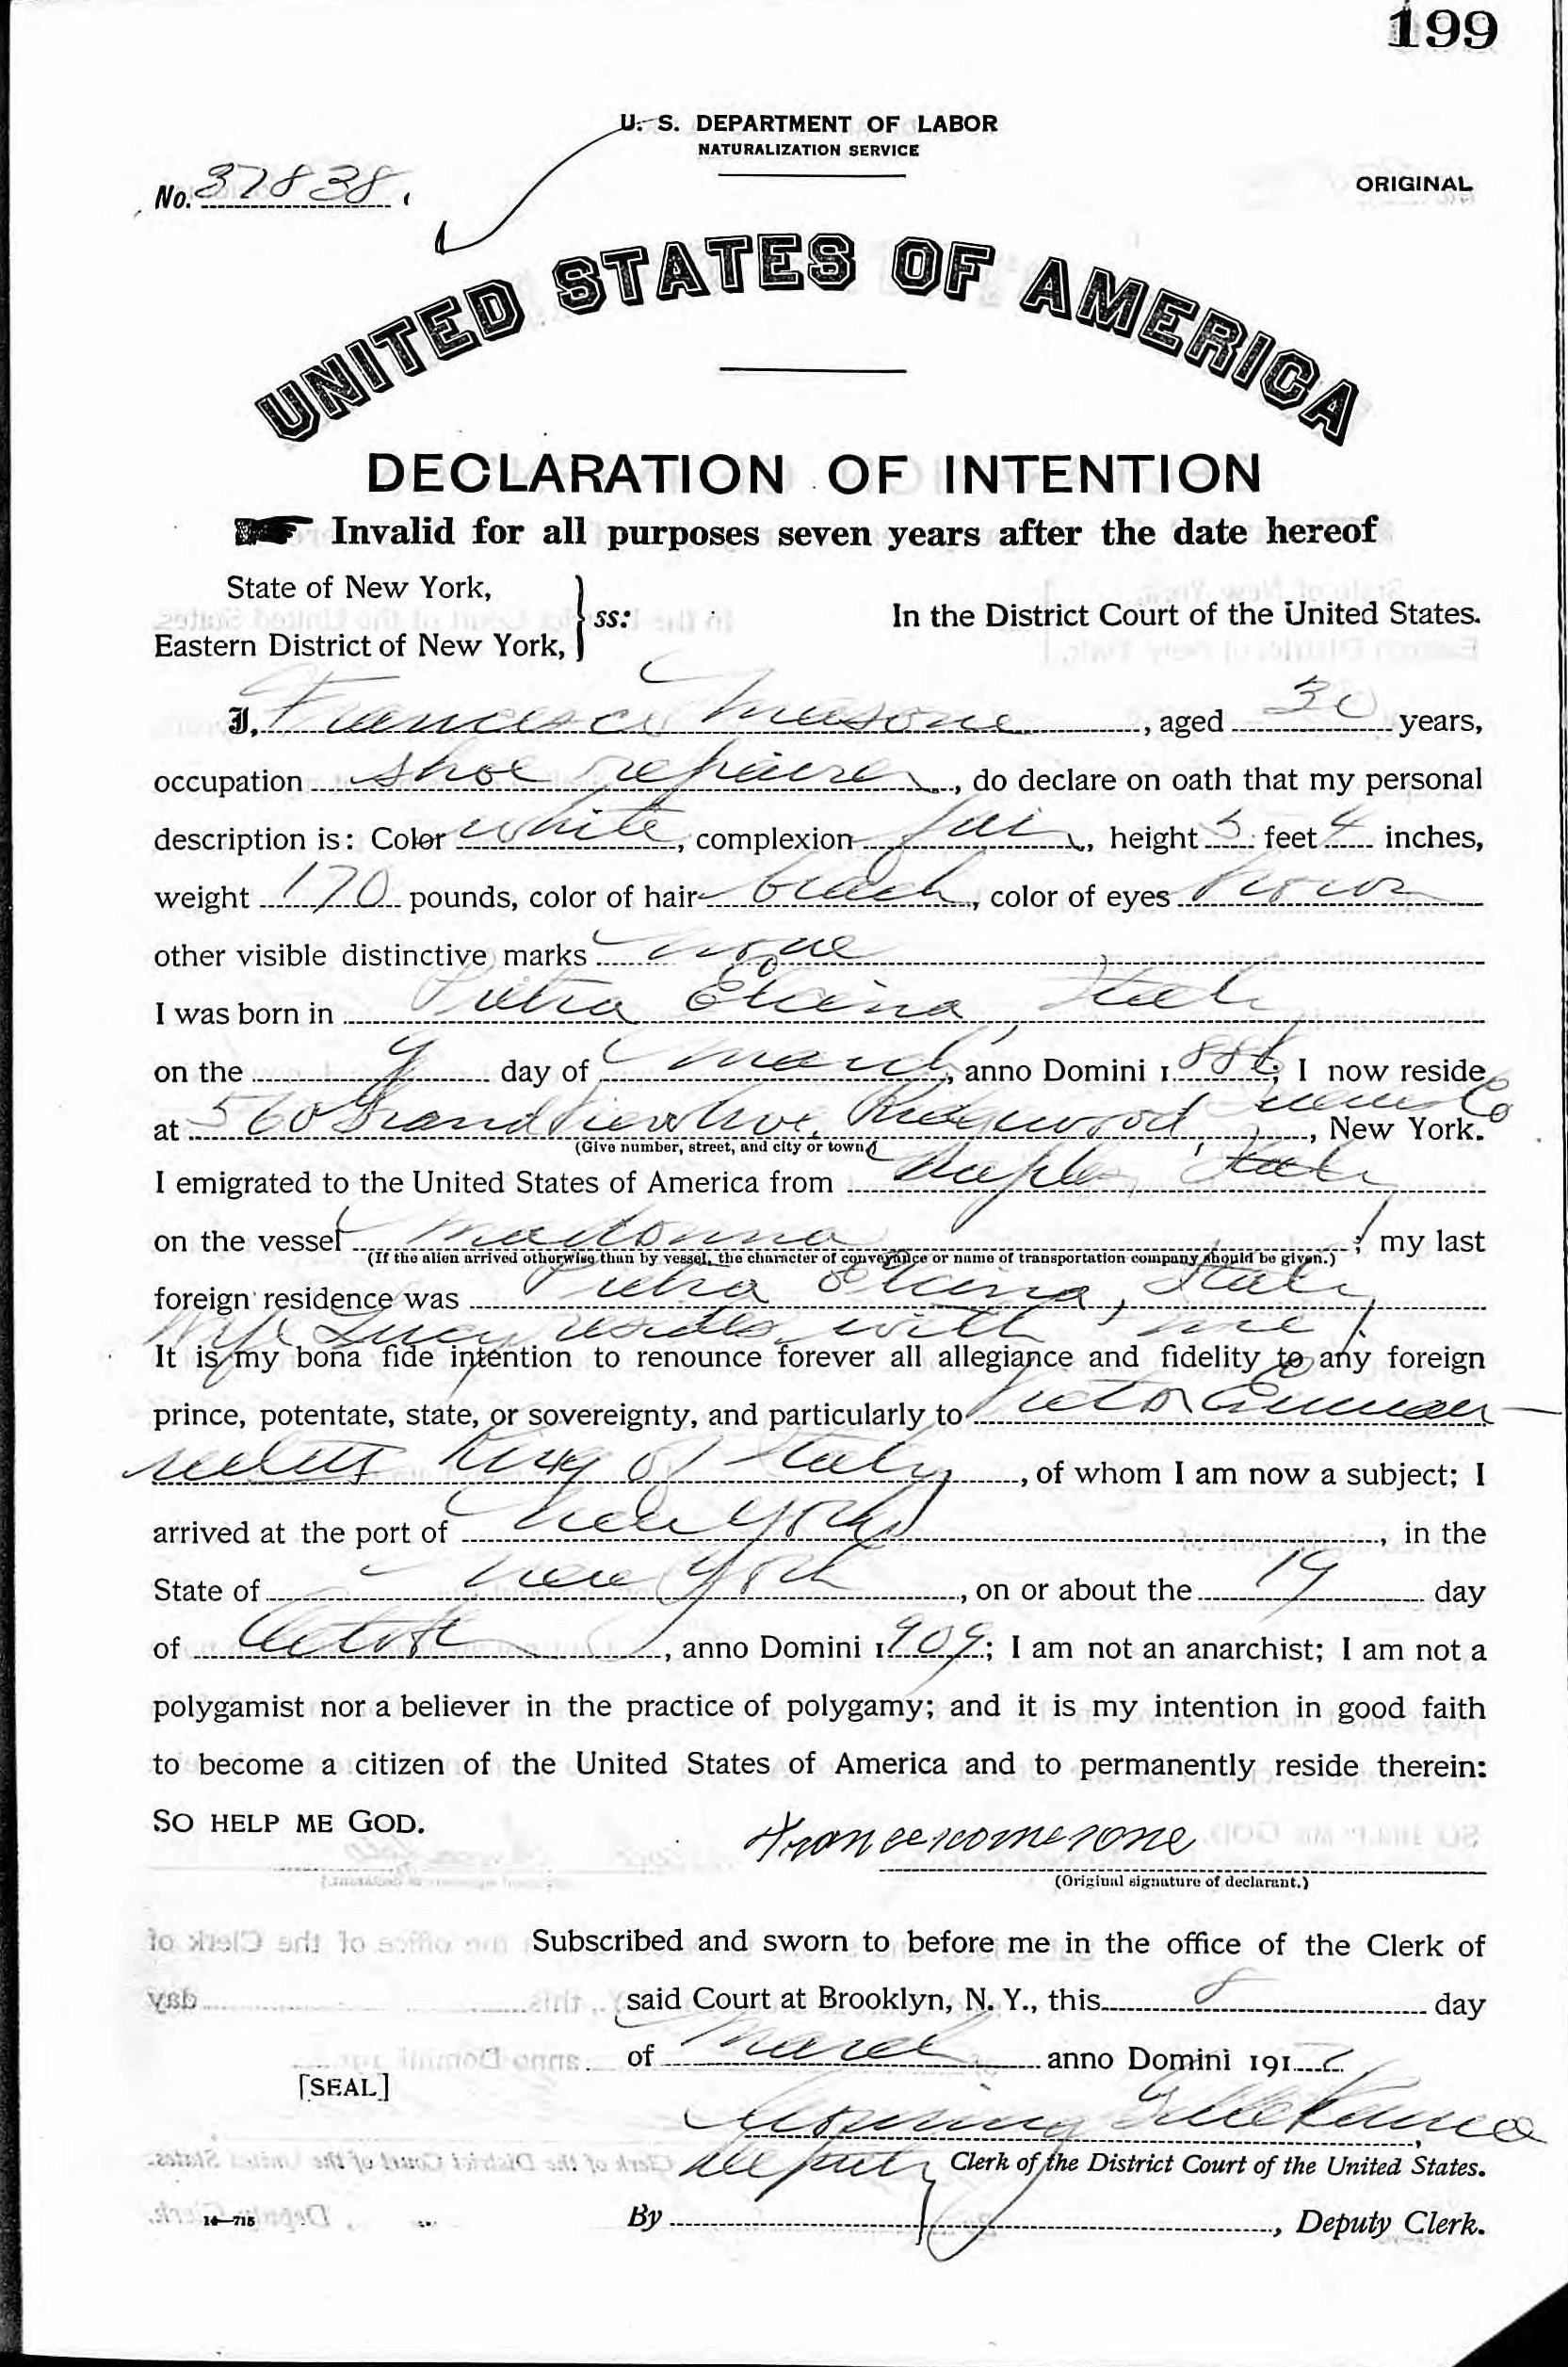 199
U. S. DEPARTMENT OF LABOR
NATURALIZATION SERVICE
No. 37838
ORIGINAL
UNITED STATES OF AMERICA
DECLARATION OF INTENTION
Invalid for all purposes seven years after the date hereof
State of New York,
Eastern District of New York,
ss:
In the District Court of the United States.
I, Francesco Masone, aged 30 years,
occupation shoe repairer, do declare on oath that my personal
description is: Color white, complexion fair, height 5 feet 4 inches,
weight 170 pounds, color of hair black, color of eyes brown
other visible distinctive marks none
I was born in Pietra Elcina, Italy
on the 9 day of March, anno Domini 1886; I now reside
at 560 Grandview Ave. Ridgewood, Queens Co, New York.
(Give number, street, and city or town.)
I emigrated to the United States of America from Naples, Italy
on the vessel Madonna; my last
(If the alien arrived otherwise than by vessel, the character of conveyance or name of transportation company should be given.)
foreign residence was Pietra Elcina, Italy
Wife Lucy resides with me.
It is my bona fide intention to renounce forever all allegiance and fidelity to any foreign
prince, potentate, state, or sovereignty, and particularly to Victor Emman
King of Italy, of whom I am now a subject; I
arrived at the port of New York, in the
State of New York, on or about the 19 day
of October, anno Domini 1909; I am not an anarchist; I am not a
polygamist nor a believer in the practice of polygamy; and it is my intention in good faith
to become a citizen of the United States of America and to permanently reside therein:
SO HELP ME GOD.
(Original signature of declarant.)
Subscribed and sworn to before me in the office of the Clerk of
said Court at Brooklyn, N. Y., this 8 day
of March anno Domini 191
[SEAL]
Deputy Clerk of the District Court of the United States.
14—715
By , Deputy Clerk.